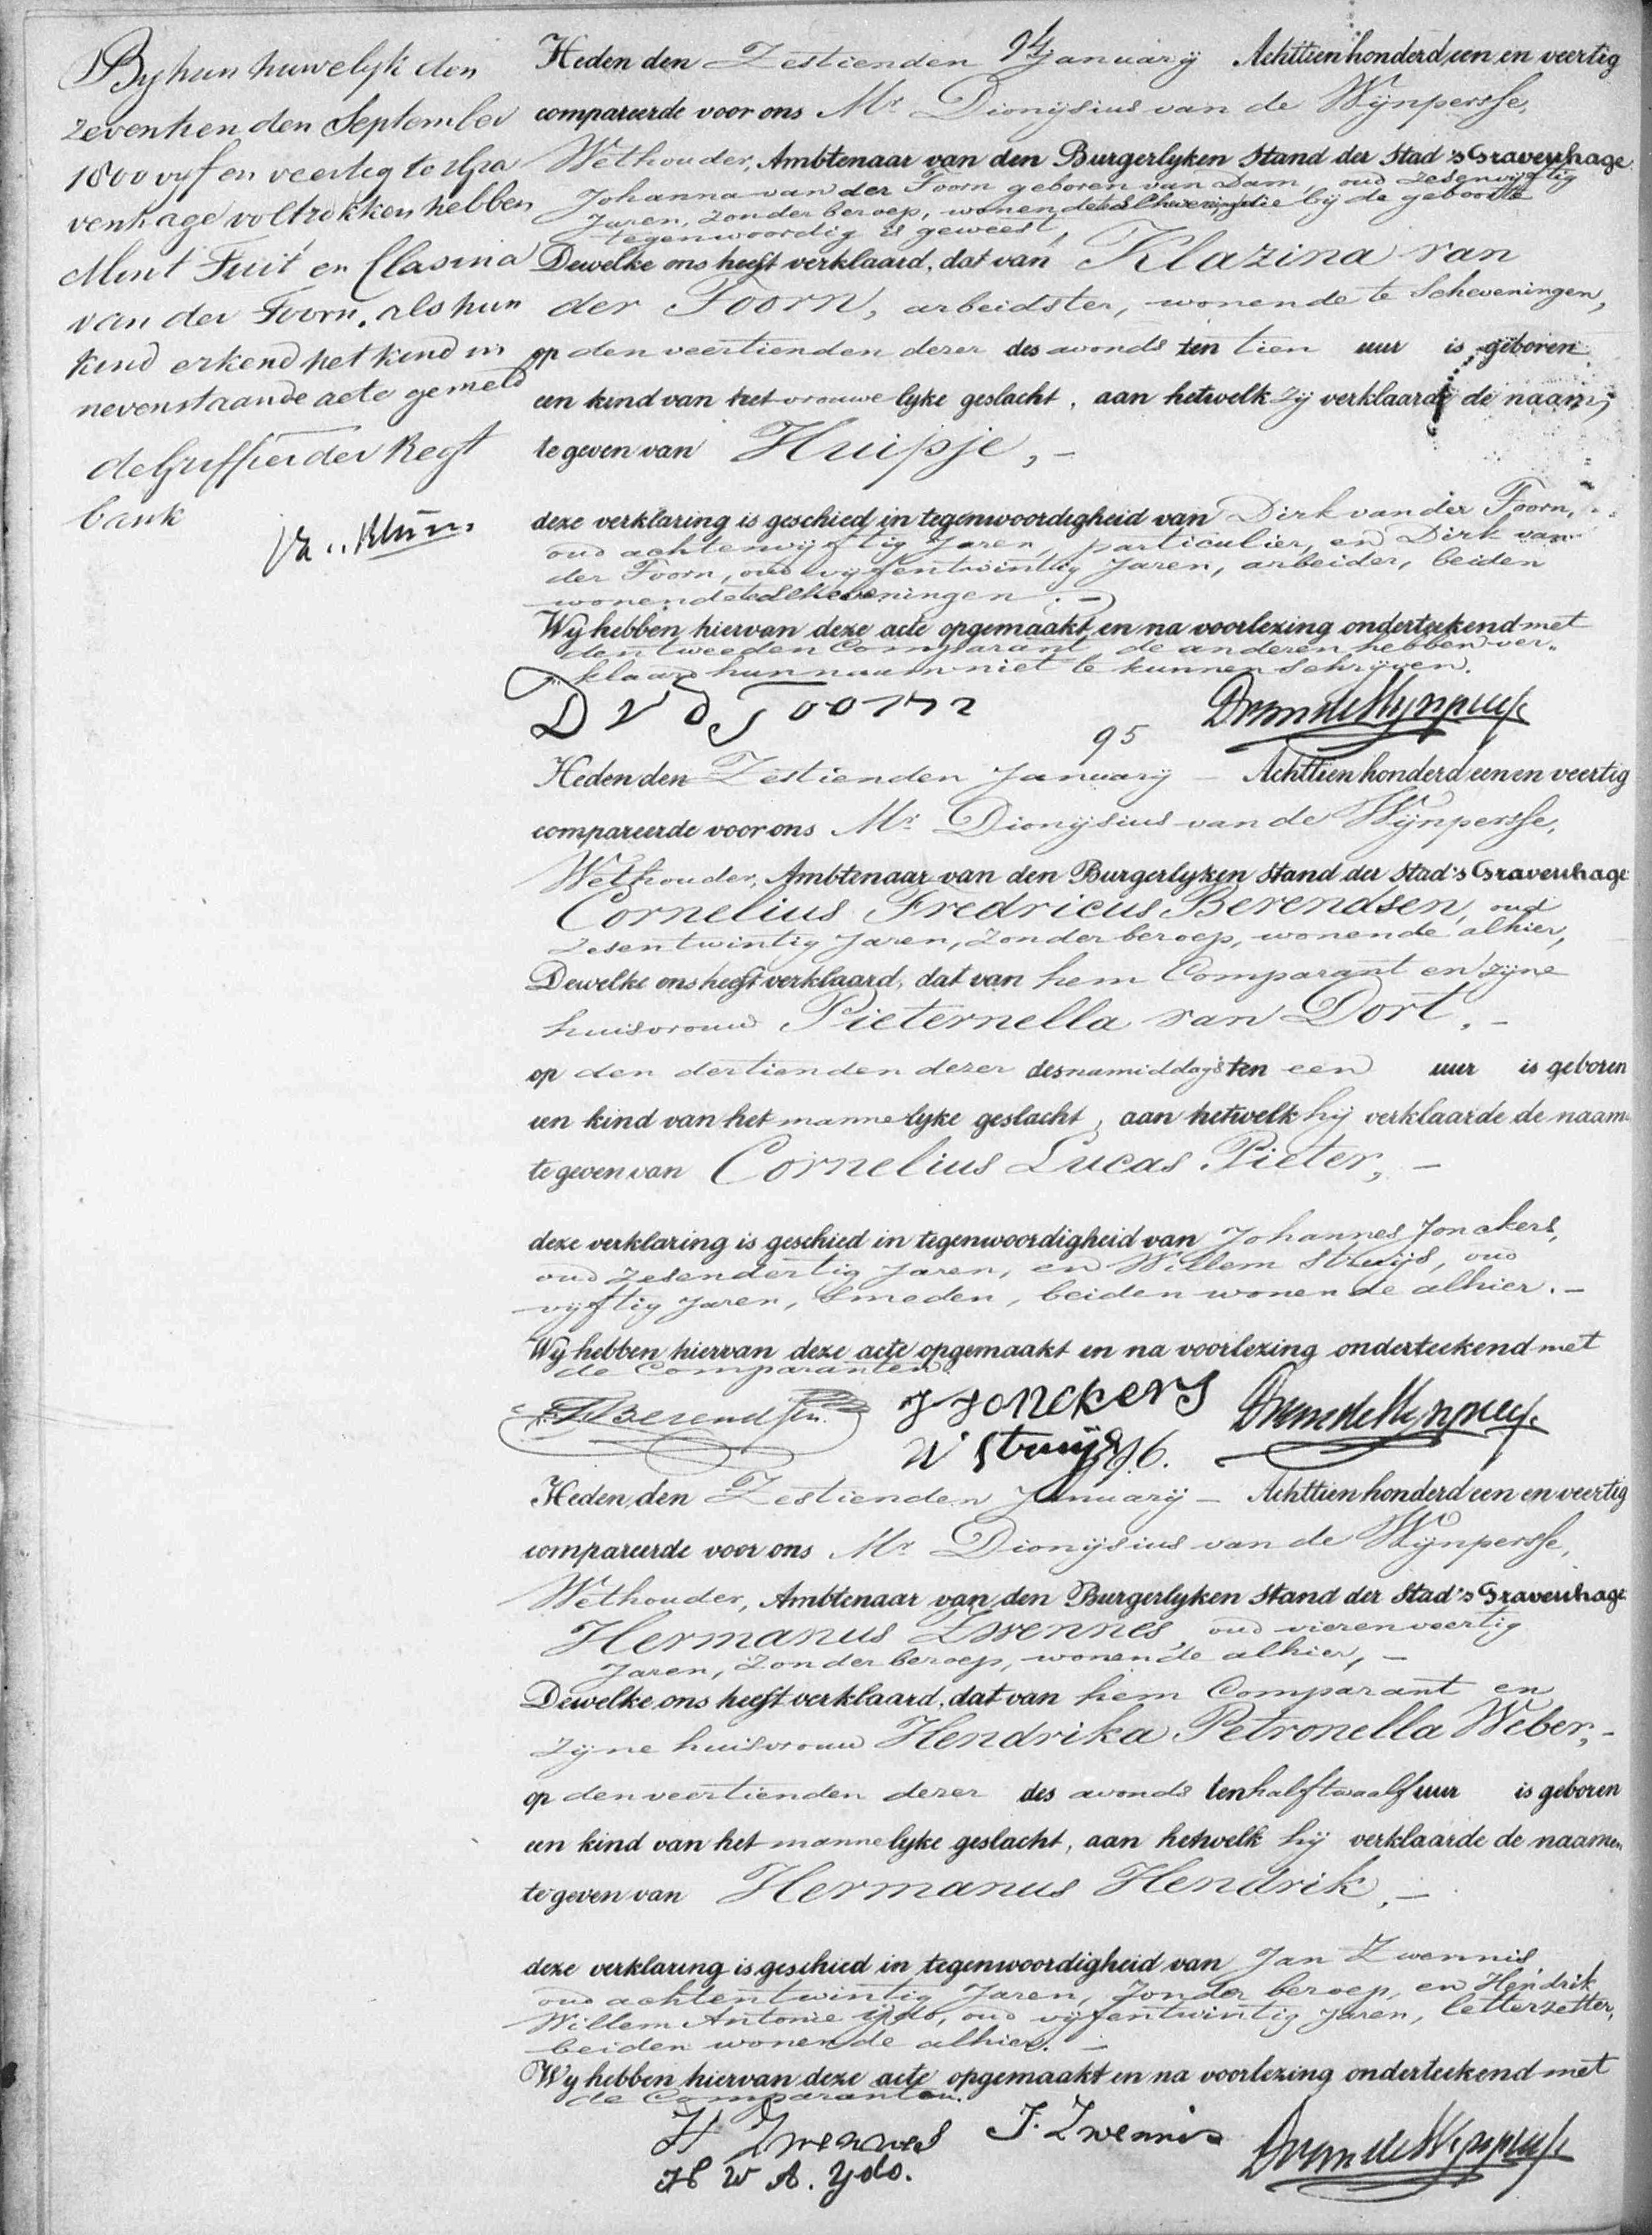 By hun huwelyk den
zeventienden September
1800 vyf en veertig te 'sGra
venhage voltrokken hebben
Ment Tuit en Clasina
van der Toorn, als hun
kind erkend het kind in
nevenstaande acte gemeld
de Griffier der Regt
bank
94
Heden den Zestienden January Achttienhonderd een en veertig
compareerde voor ons Mr. Dionysius van de Wijnpersse,
Wethouder, Ambtenaar van den Burgerlyken Stand der Stad 's Gravenhage
Johanna van der Toorn geboren van Dam, oud zesenvijftig
Jaren, zonder beroep, wonende te Scheveningen, die bij de geboorte
tegenwoordig is geweest,
Dewelke ons heeft verklaard, dat van Klazina van
der Toorn, arbeidster, wonende te Scheveningen,
op den veertienden dezer des avonds ten tien uur is geboren
een kind van het vrouwelyke geslacht, aan hetwelk zij verklaarde de naam
te geven van Huipje, -
deze verklaring is geschied in tegenwoordigheid van Dirk van der Toorn,
oud achtenvijftig Jaren, particulier, en Dirk van
der Toorn, oud vijfentwintig Jaren, arbeider, beiden
wonende te Scheveningen. -
Wy hebben hiervan deze acte opgemaakt en na voorlezing onderteekend met
den tweeden Comparant, de anderen hebben ver-
klaard hun naam niet te kunnen schrijven.
D v d Toorn DvandeWynpersse
95
Heden den Zestienden January - Achttienhonderd een en veertig
compareerde voor ons Mr. Dionysius van de Wijnpersse,
Wethouder, Ambtenaar van den Burgerlyken Stand der Stad 's Gravenhage
Cornelius Fredricus Berendsen, oud
zesentwintig Jaren, zonder beroep, wonende alhier,
Dewelke ons heeft verklaard, dat van hem Comparant en zijne
huisvrouw Pieternella van Dort, -
op den dertienden dezer des namiddags ten een uur is geboren
een kind van het mannelyke geslacht, aan hetwelk hij verklaarde de naam
te geven van Cornelius Lucas Pieter, -
deze verklaring is geschied in tegenwoordigheid van Johannes Jonckers,
oud zesendertig Jaren, en Willem Struijs, oud
vijftig Jaren, smeden, beiden wonende alhier. -
Wy hebben hiervan deze acte opgemaakt en na voorlezing onderteekend met
de Comparanten.
Berendsen J Jonckers DvandeWynpersse
W Struijs
96.
Heden den Zestienden January - Achttienhonderd een en veertig
compareerde voor ons Mr. Dionysius van de Wijnpersse,
Wethouder, Ambtenaar van den Burgerlyken Stand der Stad 's Gravenhage
Hermanus Zwennes, oud vierenveertig
Jaren, zonder beroep, wonende alhier, -
Dewelke ons heeft verklaard, dat van hem Comparant en
zijne huisvrouw Hendrika Petronella Weber, -
op den veertienden dezer des avonds ten half twaalf uur is geboren
een kind van het mannelyke geslacht, aan hetwelk hij verklaarde de naamen
te geven van Hermanus Hendrik, -
deze verklaring is geschied in tegenwoordigheid van Jan Zwennis,
oud achtentwintig Jaren, zonder beroep, en Hendrik
Willem Antonie Ydo, oud vijfentwintig Jaren, letterzetter,
beiden wonende alhier. -
Wy hebben hiervan deze acte opgemaakt en na voorlezing onderteekend met
de Comparanten.
H Zwennes J. Zwennis DvandeWynpersse
H W A. Ydo.